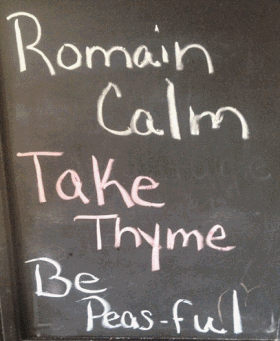 Romain
Calm
Take
Thyme
Be
Peas-ful